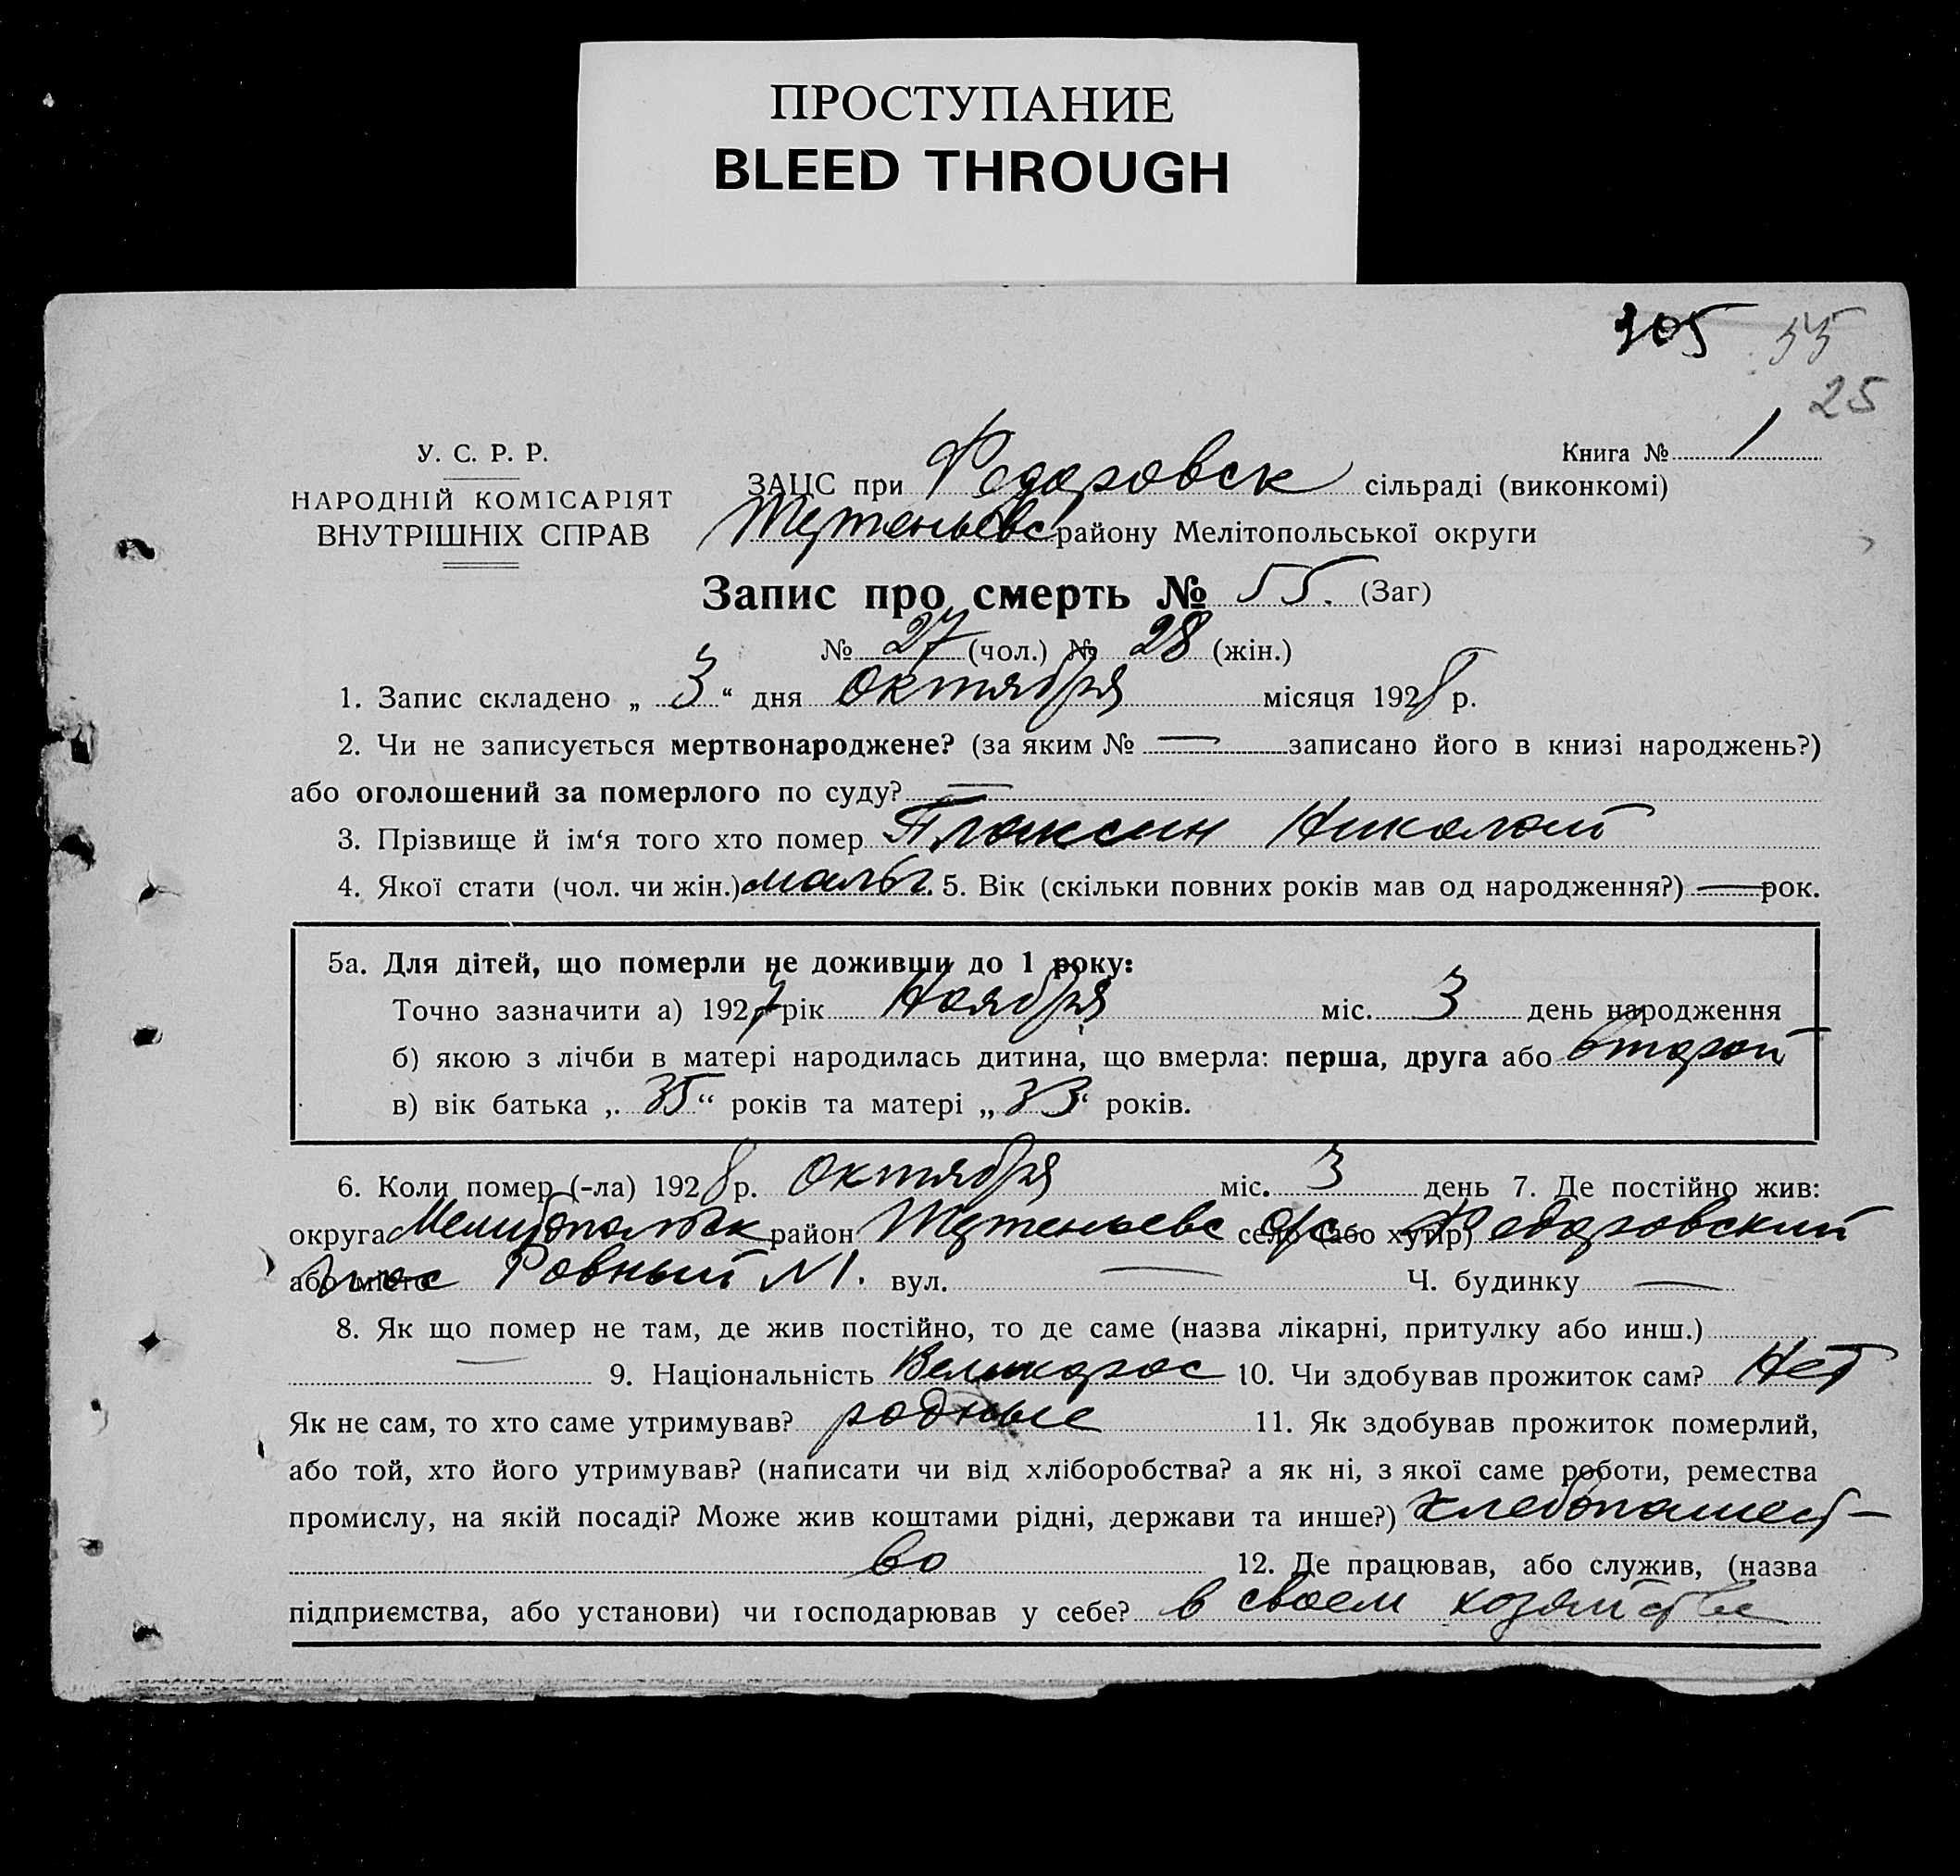 ПРОСТУПАНИЕ
BLEED THROUGH
305 55
25
У. С. Р. Р.
НАРОДНІЙ КОМІСАРІЯТ
ВНУТРІШНІХ СПРАВ
Книга № 1
ЗАЦС при Федоровск сільраді (виконкомі)
району Мелітопольської округи
Запис про смерть № 55. (Заг)
№ 27 (чол.) № 28 (жін.)
1. Запис складено „ 3 “ дня Октября місяця 1928 р.
2. Чи не записується мертвонароджене? (за яким № — записано його в книзі народжень?)
або оголошений за померлого по суду? —
3. Прізвище й ім‘я того хто помер Плаксин Николай
4. Якої стати (чол. чи жін.) мальч. 5. Вік (скільки повних років мав од народження?) — рок.
5а. Для дітей, що померли не доживши до 1 року:
Точно зазначити а) 1927 рік Ноября міс. 3 день народження
б) якою з лічби в матері народилась дитина, що вмерла: перша, друга або второй
в) вік батька „ 35 “ років та матері „ 33 “ років.
6. Коли помер (-ла) 1928 р. Октября міс. 3 день 7. Де постійно жив:
округа Мелитопольск район село (або хутір) Федоровский
або місто Ровный №1. вул. — Ч. будинку —
8. Як що помер не там, де жив постійно, то де саме (назва лікарні, притулку або инш.)
— 9. Національність Великорос 10. Чи здобував прожиток сам? Нет
Як не сам, то хто саме утримував? родные 11. Як здобував прожиток померлий,
або той, хто його утримував? (написати чи від хліборобства? а як ні, з якої саме роботи, ремества
промислу, на якій посаді? Може жив коштами рідні, держави та инше?) хлебопашест-
во 12. Де працював, або служив, (назва
підприємства, або установи) чи господарював у себе? в своем хозяйстве